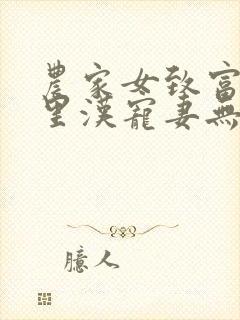 農家女致富
里漢寵妻無
臆人